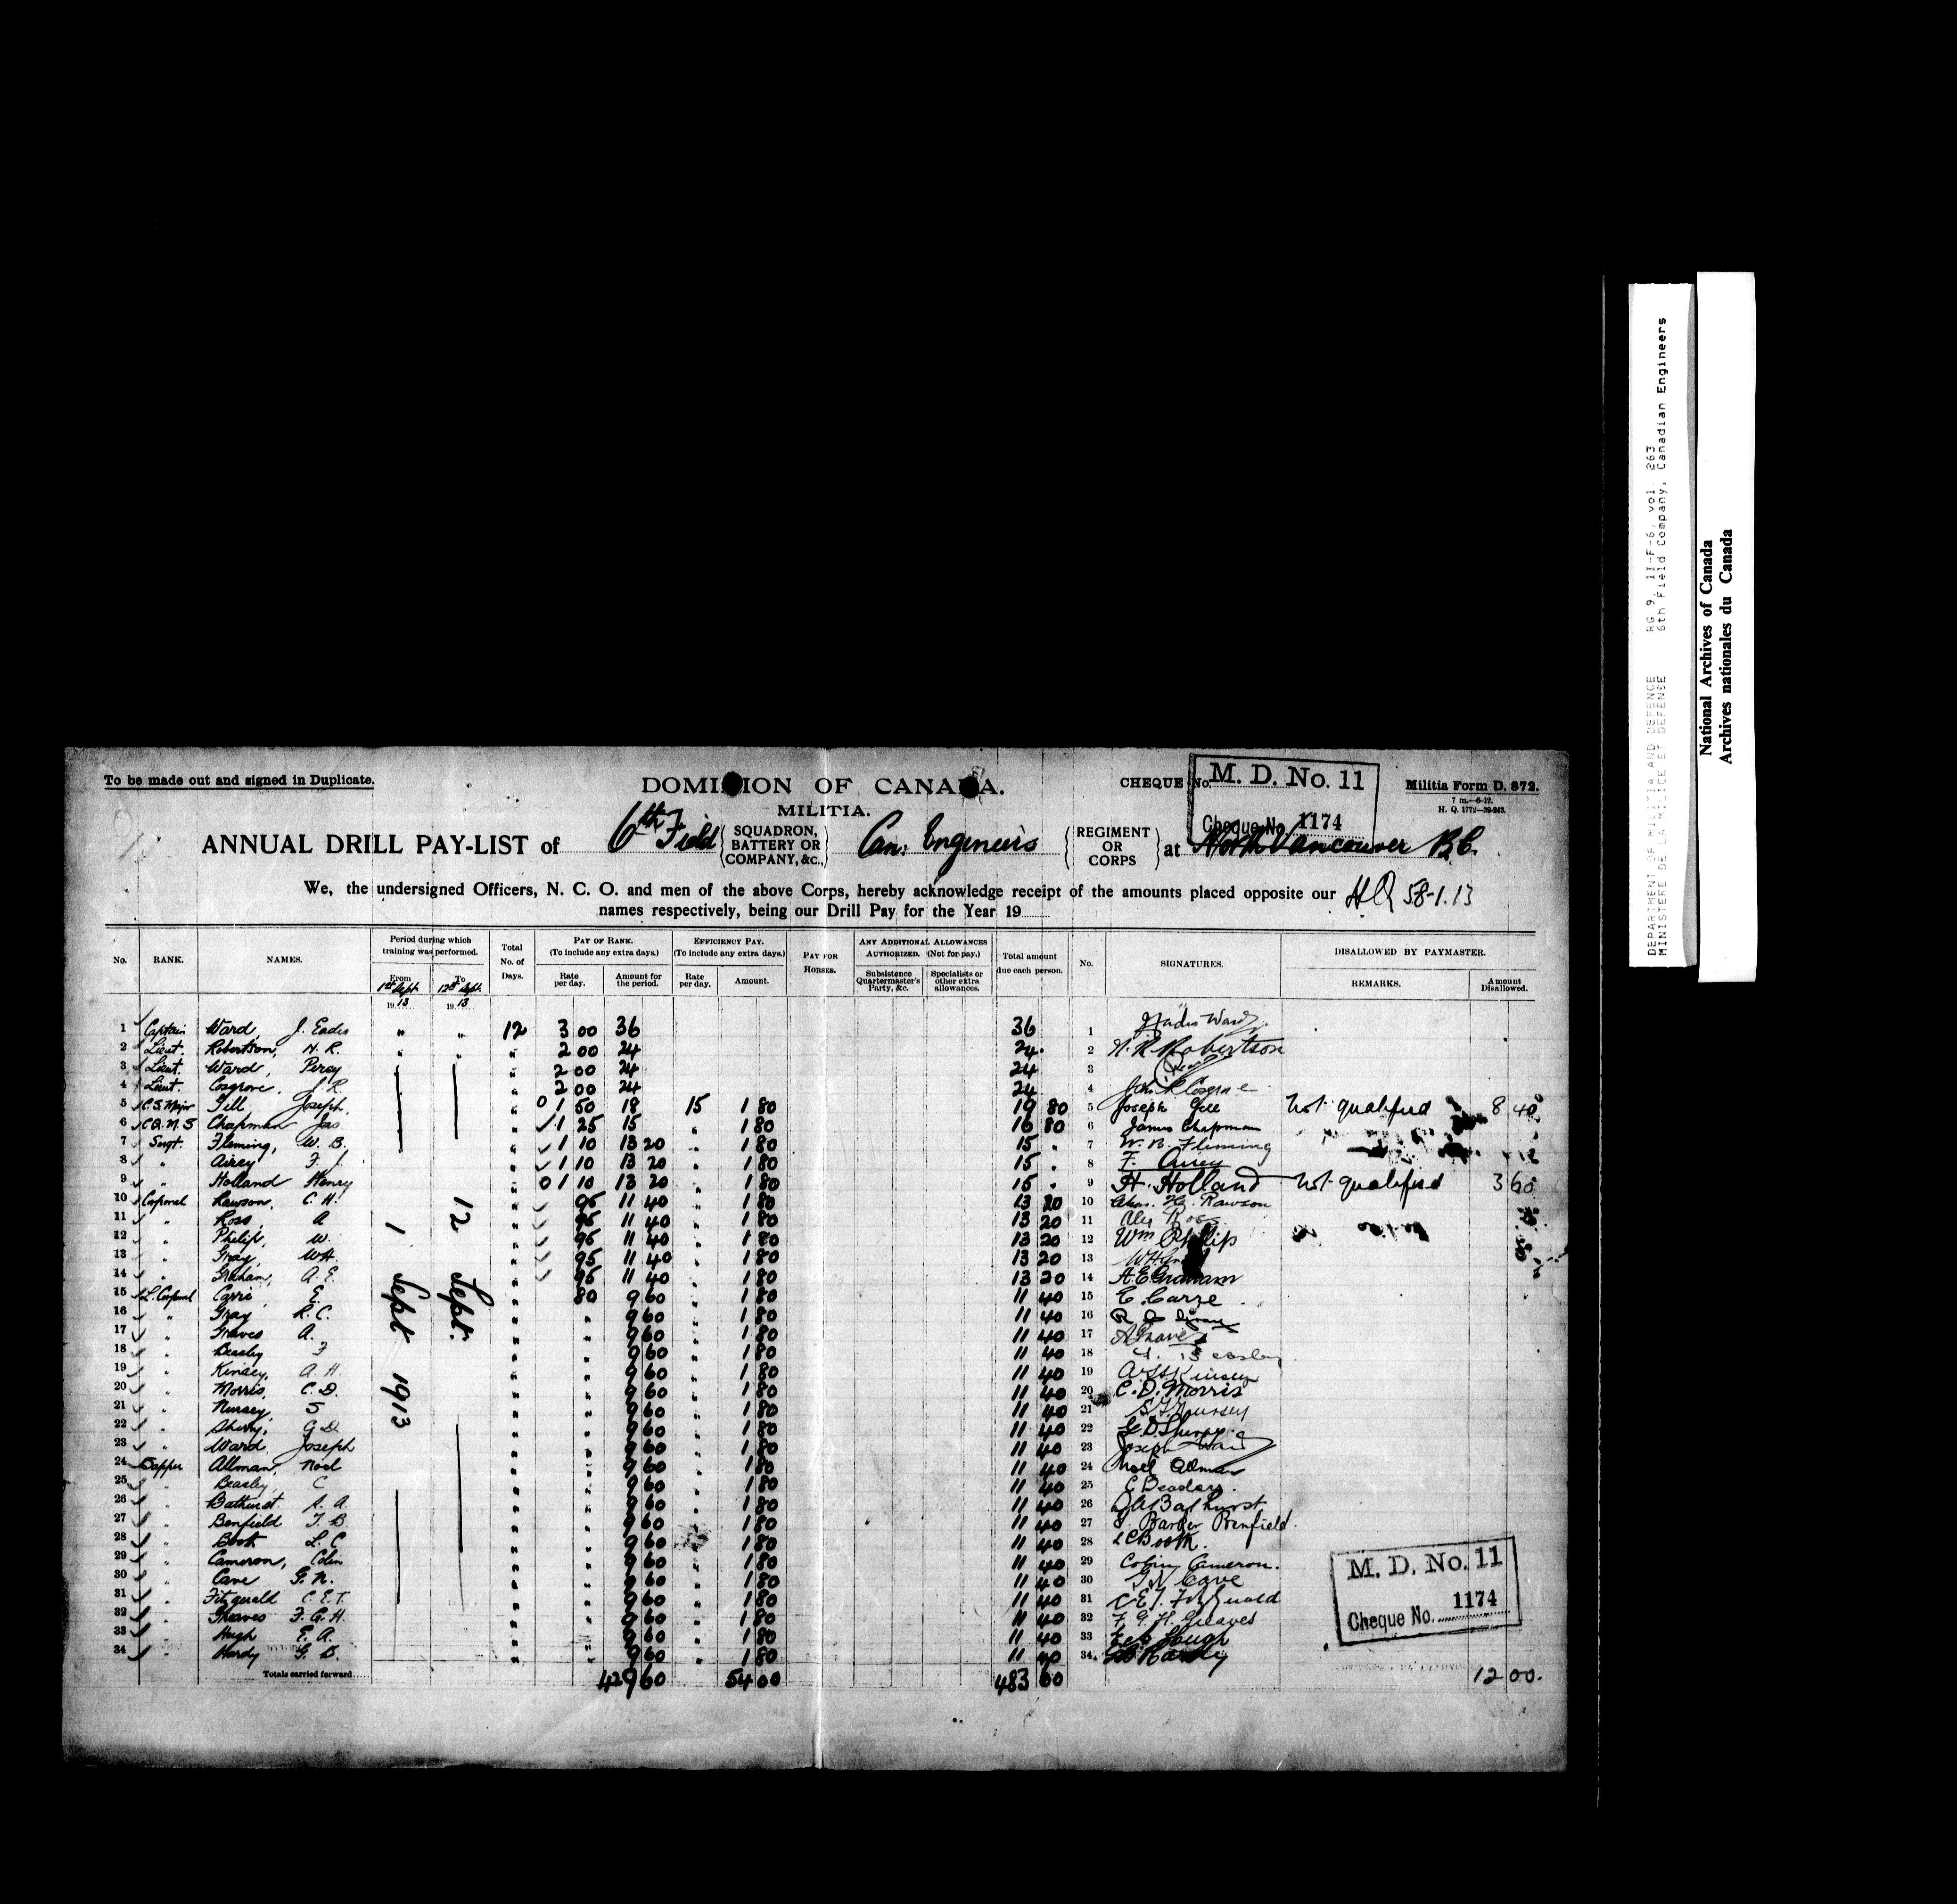 To be made out and signed in Duplicate.
DOMINION OF CANADA.
MILITIA.
CHEQUE No.
M. D. No. 11
Cheque No. 1174
Militia Form D. 872.
7 m.—6-12.
H. Q. 1772—39-243.
ANNUAL DRILL PAY-LIST of 6th Field SQUADRON, BATTERY OR COMPANY, &c., Can. Engineers REGIMENT OR CORPS at North Vancouver B.C.
We, the undersigned Officers, N. C. O. and men of the above Corps, hereby acknowledge receipt of the amounts placed opposite our HQ 58-1.13
names respectively, being our Drill Pay for the Year 19
No. RANK. NAMES. Period during which training was performed. From 1st Sept 1913 To 12th Sept. 1913 Total No. of Days. PAY OF RANK. (To include any extra days.) Rate per day. Amount for the period. EFFICIENCY PAY. (To include any extra days.) Rate per day. Amount. PAY FOR HORSES. ANY ADDITIONAL ALLOWANCES AUTHORIZED. (Not for pay.) Subsistence Quartermaster's Party, &c. Specialists or other extra allowances. Total amount due each person. No. SIGNATURES. DISALLOWED BY PAYMASTER. REMARKS. Amount Disallowed.
1 Captain Ward, J. Eades " " 12 3 00 36 36 1
2 Lieut. Robertson, H. R. " " " 2 00 24 24 2 H. R. Robertson
3 Lieut. Ward, Percy " 2 00 24 24 3
4 Lieut. Cosgrove, J R. " 2 00 24 24 4
5 C. S. Major Gill Joseph, " 0 1 50 18 15 1 80 19 80 5 Joseph Gill Not qualified 8 40
6 C Q. M. S Chapman Jas " 1 25 15 " 1 80 16 80 6 James Chapman
7 Sergt. Fleming, W. B. " 1 10 13 20 " 1 80 15 " 7 W. B. Fleming
8 " Airey F. J. " 1 10 13 20 " 1 80 15 " 8 F. Airey
9 " Holland Henry " 0 1 10 13 20 " 1 80 15 " 9 H. Holland Not qualified 3 60
10 Corporal Rawson, C. H. " 95 11 40 " 1 80 13 20 10 Chas. H. Rawson
11 " Ross, A " 95 11 40 " 1 80 13 20 11 Alex Ross
12 " Philip, W. " 95 11 40 " 1 80 13 20 12 Wm Philip
13 " Gray, WH. " 95 11 40 " 1 80 13 20 13
14 " Graham, A. E. " 95 11 40 " 1 80 13 20 14 A. E. Graham
15 L. Corporal Carre E. " 80 9 60 " 1 80 11 40 15
16 " Gray R. C. " " 9 60 " 1 80 11 40 16
17 " Graves A. " " 9 60 " 1 80 11 40 17 A Graves
18 " Beasley F " " 9 60 " 1 80 11 40 18
19 " Kinsey, A. H. " " 9 60 " 1 80 11 40 19 A H Kinsey
20 " Morris, C. D. " " 9 60 " 1 80 11 40 20 C. D. Morris
21 " Nursey, S " " 9 60 " 1 80 11 40 21
22 " Sherry, G D. " " 9 60 " 1 80 11 40 22 G. D. Sherry
23 " Ward Joseph " " 9 60 " 1 80 11 40 23 Joseph Ward
24 Sapper Allman, Noel " " 9 60 " 1 80 11 40 24 Noel Allman
25 " Beasley, C " " 9 60 " 1 80 11 40 25
26 " Bathurst A. A. " " 9 60 " 1 80 11 40 26
27 " Benfield T. B. " " 9 60 " 1 80 11 40 27 T. Barber Benfield.
28 " Booth L. C " " 9 60 " 1 80 11 40 28 L C Booth.
29 " Cameron, Colin " " 9 60 " 1 80 11 40 29 Colin Cameron.
30 " Cave G. N. " " 9 60 " 1 80 11 40 30 G N Cave
31 " Fitzgerald C. E. T. " " 9 60 " 1 80 11 40 31
32 " Greaves F. G. H. " " 9 60 " 1 80 11 40 32 F. G. H. Greaves
33 " Hugh E. A. " " 9 60 " 1 80 11 40 33
34 " Hardy G. B. " " 9 60 " 1 80 11 40 34
1 Sept 1913
12 Sept.
Totals carried forward 429 60 54 00 483 60 12 00.
M. D. No. 11
Cheque No. 1174
DEPARTMENT OF MILITIA AND DEFENCE RG 9, II-F-6, vol. 263
MINISTERE DE LA MILICE ET DEFENSE 6th Field Company, Canadian Engineers
National Archives of Canada
Archives nationales du Canada